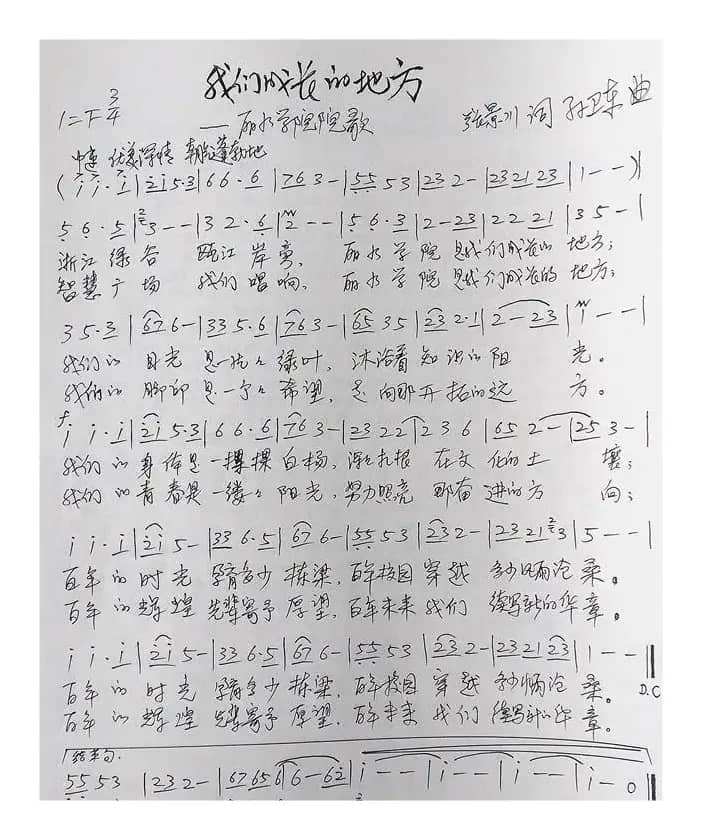 我们成长的地方
1=F 3/4
——丽水学院院歌
张景川 词 孙卫东 曲
中速 优美深情 朝气蓬勃地
( i i· i | 2i 5·3 | 6 6· 6 | 76 3 - | 55 5 3 | 23 2 - | 23 21 23 | 1 - - )|
5 6· 5 | 3 - - | 3 2· 6 | 2 - - | 5 6· 3 | 2 - 23 | 2 2 21 | 3 5 - |
浙江绿谷 瓯江岸旁, 丽水学院是我们成长的地方;
智慧广场 我们唱响, 丽水学院是我们成长的地方;
3 5·3 | 67 6 - | 33 5·6 | 76 3 - | 65 3 5 | 23 2·1 | 2 - 23 | 1 - - |
我们的目光是一片片绿叶, 沐浴着知识的阳光。
我们的脚印是一个个希望, 走向那开拓的远方。
f i i· i | 2i 5·3 | 6 6· 6 | 76 3 - | 23 22 | 2 3 6 | 65 2 - | 25 3 - |
我们的身体是一棵棵白杨, 深深扎根在文化的土壤;
我们的青春是一缕缕阳光, 努力照亮那奋进的方向;
i i· i | 2i 5 - | 33 6·5 | 67 6 - | 55 5 3 | 23 2 - | 23 21 3 | 5 - - |
百年的时光孕育多少栋梁, 百年校园穿越多少风雨沧桑。
百年的辉煌先辈寄予厚望, 百年未来我们续写新的华章。
i i· i | 2i 5 - | 33 6·5 | 67 6 - | 55 5 3 | 23 2 - | 23 21 23 | 1 - - ‖
百年的时光孕育多少栋梁, 百年校园穿越多少风雨沧桑。 D.C
百年的辉煌先辈寄予厚望, 百年未来我们续写新的华章。
结束句.
55 5 3 | 23 2 - | 67 65 6 | 6 - 62 | i - - | i - - | i - - | i - 0 ‖